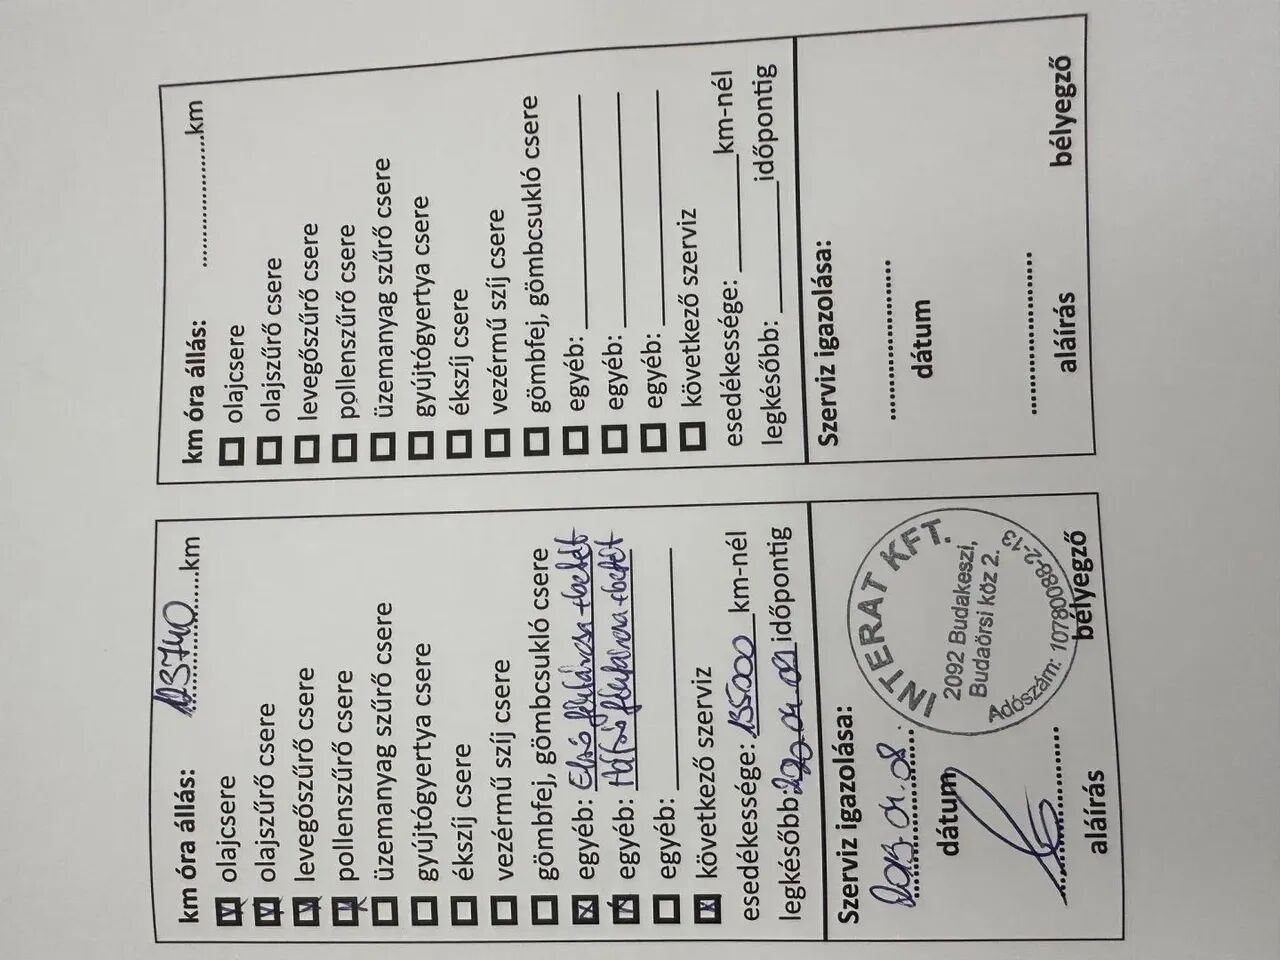 km óra állás: 123740 km
olajcsere
olajszűrő csere
levegőszűrő csere
pollenszűrő csere
üzemanyag szűrő csere
gyújtógyertya csere
ékszíj csere
vezérmű szíj csere
gömbfej, gömbcsukló csere
egyéb: Első féktárcsa+betét
egyéb: Hátsó féktárcsa+betét
egyéb:
következő szerviz
esedékessége: 135000 km-nél
legkésőbb: időpontig
Szerviz igazolása:
dátum
aláírás
bélyegző
INTERAT KFT.
2092 Budakeszi,
Budaörsi köz 2.
Adószám: 10780088-2-13
km óra állás: ....................km
olajcsere
olajszűrő csere
levegőszűrő csere
pollenszűrő csere
üzemanyag szűrő csere
gyújtógyertya csere
ékszíj csere
vezérmű szíj csere
gömbfej, gömbcsukló csere
egyéb:
egyéb:
egyéb:
következő szerviz
esedékessége: km-nél
legkésőbb: időpontig
Szerviz igazolása:
dátum
aláírás
bélyegző